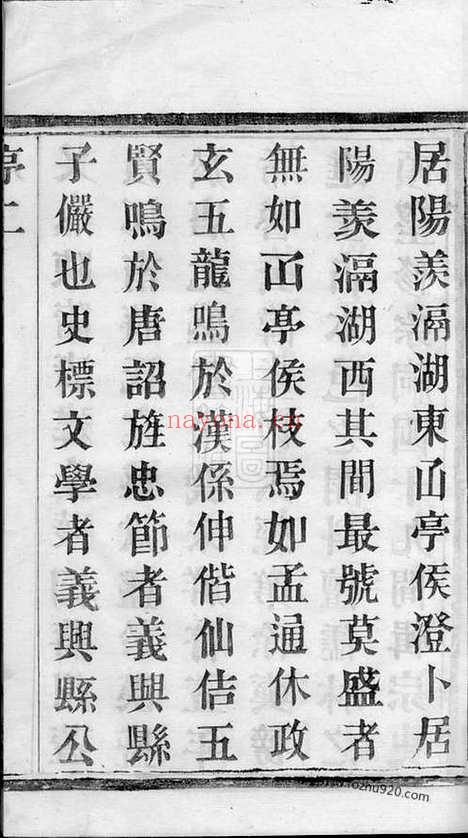 居陽羨滆湖東𠙽亭侯澄卜居
陽羨滆湖西其間最號莫盛者
無如𠙽亭侯枝焉如孟通休政
玄五龍鳴於漢係仲偕仙佶五
賢鳴於唐詔旌忠節者義興縣
子儼也史標文學者義興縣公
序二
nayona.cn